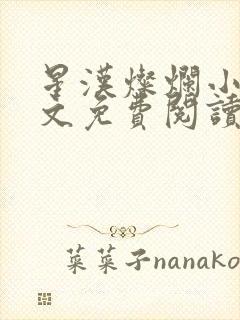 星漢燦爛小
文免費閱讀
菜菜子nanako